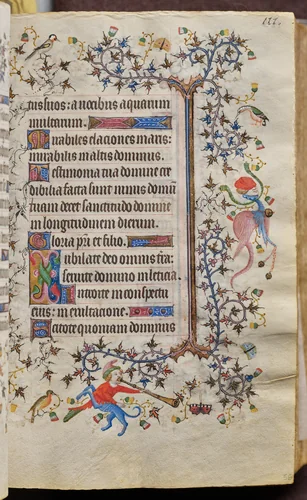 ctus suos: a vocibus aquarum
multarum.
Mirabiles elaciones maris:
mirabilis in altis dominus.
Testimonia tua domine cre
dibilia facta sunt nimis domū
tuam decet sanctitudo domine
in longitudinem dierum.
Gloria pri et filio.
Iubilate deo omnis tra:
servite domino in leticia.
Introite in conspectu
eius: in exultacione.
Scitote quoniam dominus